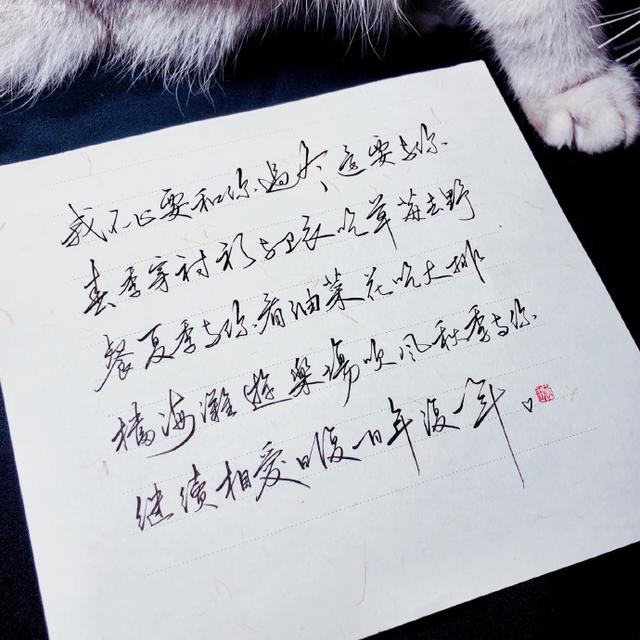 我不止要和你過冬还要与你
春季穿衬衫与卫衣吃草莓去野
餐夏季与你看油菜花吃大排
档海滩游樂场吹风秋季与你
继续相爱日復一日年復一年